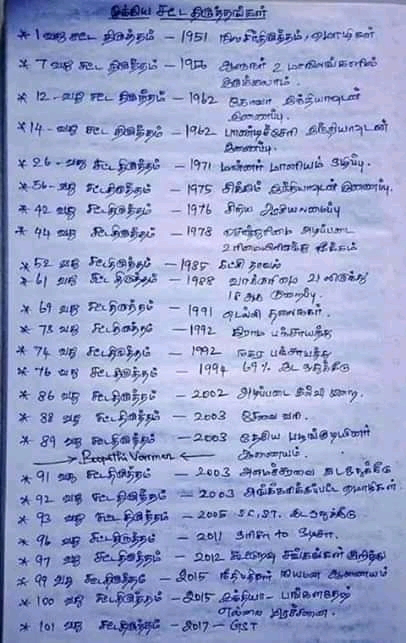 இந்திய சட்ட திருத்தங்கள்
* 1 வது சட்ட திருத்தம் - 1951 நிலச்சீர்திருத்தம், மொழிகள்
* 7 வது சட்ட திருத்தம் - 1956 ஆளுநர் 2 மாநிலங்களில்
இருக்கலாம்.
* 12 - வது சட்ட திருத்தம் - 1962 கோவா இந்தியாவுடன்
இணைப்பு.
* 14 - வது சட்ட திருத்தம் - 1962 பாண்டிச்சேரி இந்தியாவுடன்
இணைப்பு.
* 26 - வது சட்டதிருத்தம் - 1971 மன்னர் மானியம் ஒழிப்பு.
* 36 - வது சட்டதிருத்தம் - 1975 சிக்கிம் இந்தியாவுடன் இணைப்பு.
* 42 வது சட்டதிருத்தம் - 1976 சிறிய அரசியலமைப்பு
* 44 வது சட்டதிருத்தம் - 1978 சொத்துரிமை அடிப்படை
உரிமையிலிருந்து நீக்கம்
* 52 வது சட்டதிருத்தம் - 1985 கட்சி தாவல்
* 61 வது சட்டதிருத்தம் - 1988 வாக்குரிமை 21 லிருந்து
18 ஆக குறைப்பு.
* 69 வது சட்டதிருத்தம் - 1991 டெல்லி தலைநகர்.
* 73 வது சட்டதிருத்தம் - 1992 கிராம பஞ்சாயத்து
* 74 வது சட்டதிருத்தம் - 1992 நகர பஞ்சாயத்து
* 76 வது சட்டதிருத்தம் - 1994 69% இட ஒதுக்கீடு
* 86 வது சட்டதிருத்தம் - 2002 அடிப்படை கல்வி
* 88 வது சட்டதிருத்தம் - 2003 சேவை வரி.
* 89 வது சட்டதிருத்தம் - 2003 தேசிய பழங்குடியினர்
ஆணையம்.
Boopathi Varman
* 91 வது சட்டதிருத்தம் - 2003 அமைச்சரவை
* 92 வது சட்டதிருத்தம் - 2003 அங்கீகரிக்கப்பட்ட மொழிகள்.
* 93 வது சட்டதிருத்தம் - 2005 SC, ST. இடஒதுக்கீடு
* 96 வது சட்டதிருத்தம் - 2011 ஒரிசா to ஒடிசா.
* 97 வது சட்டதிருத்தம் - 2012 கூட்டுறவு சங்கங்கள் குறித்து
* 99 வது சட்டதிருத்தம் - 2015 நீதிபதிகள் நியமன ஆணையம்
* 100 வது சட்டதிருத்தம் - 2015 இந்தியா - பங்களாதேஷ்
எல்லை பிரச்சினை.
* 101 வது சட்டதிருத்தம் - 2017 - GST